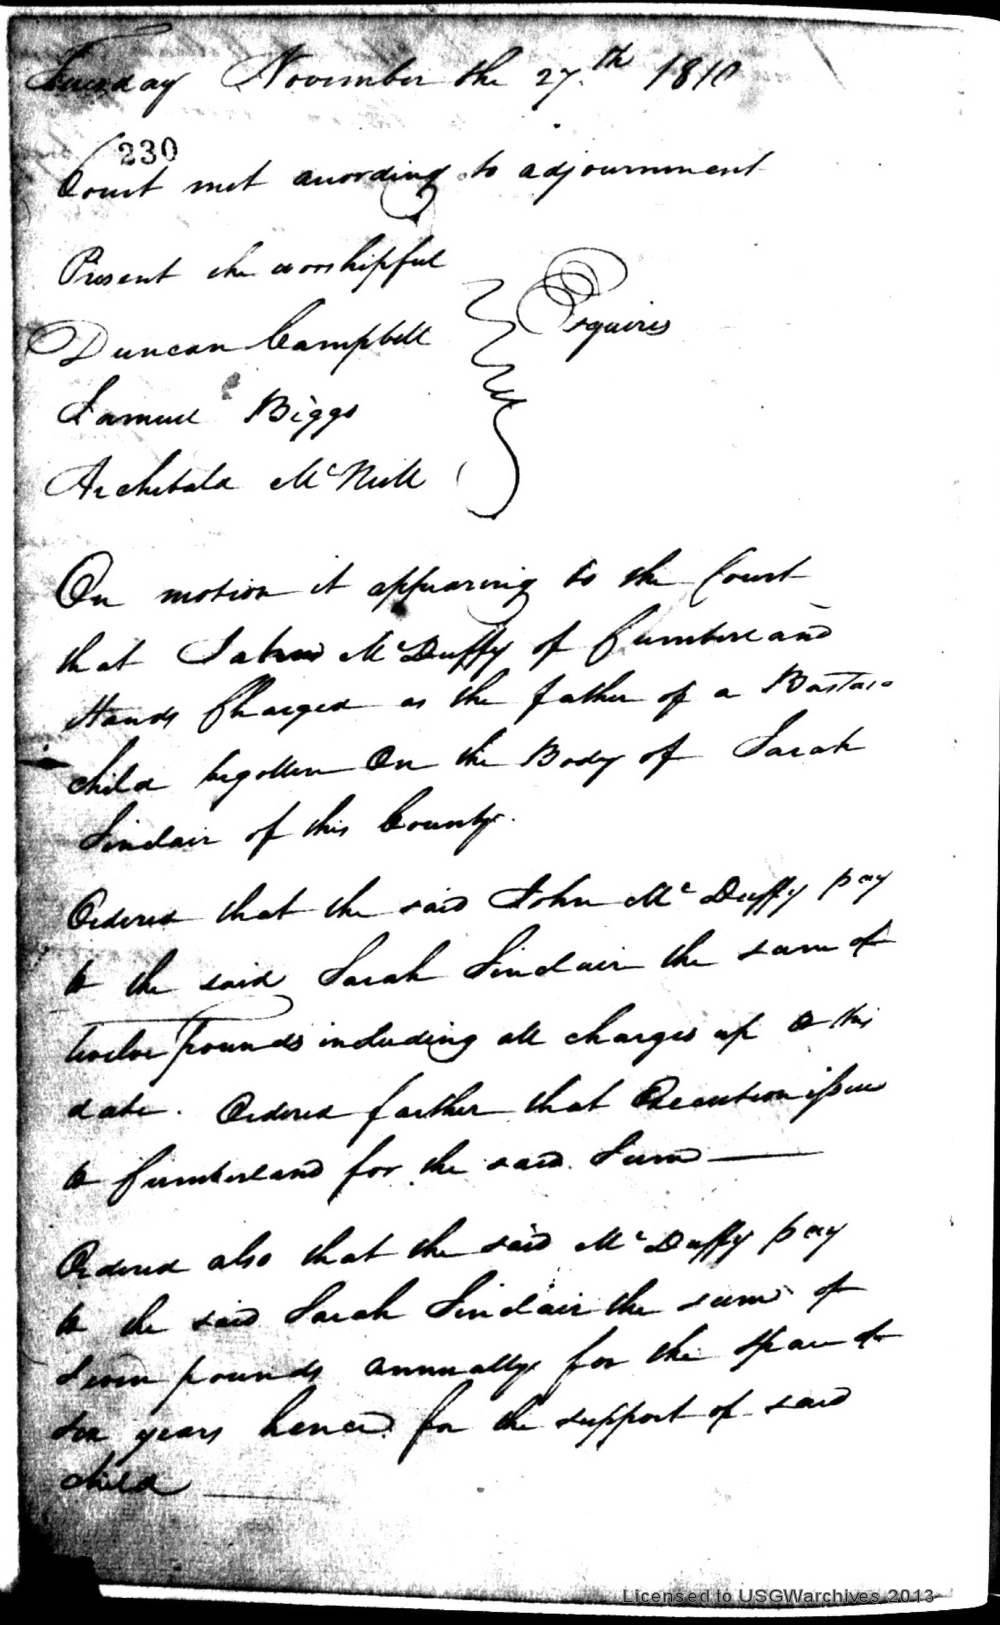 Tuesday November the 27.th 1810
230
Court met acording to adjournment
Present the worshipful
Duncan Campbell
Esquires
Samuel Biggs
Archibald McNeill
On motion it appearing to the Court
that McDuffy of Cumberland
Stands Charged as the father of a Bastard
child begotten On the Body of Sarah
Sinclair of this County.
Ordered that the said John McDuffy pay
to the said Sarah Sinclair the sum of
twelve pounds including all charges up to this
date. Ordered farther that Execution issue
to Cumberland for the said Sum
Ordered also that the said McDuffy pay
to the said Sarah Sinclair the sum of
Seven pounds annually for the Space of
years hence for the support of said
child
Licensed to USGWarchives 2013